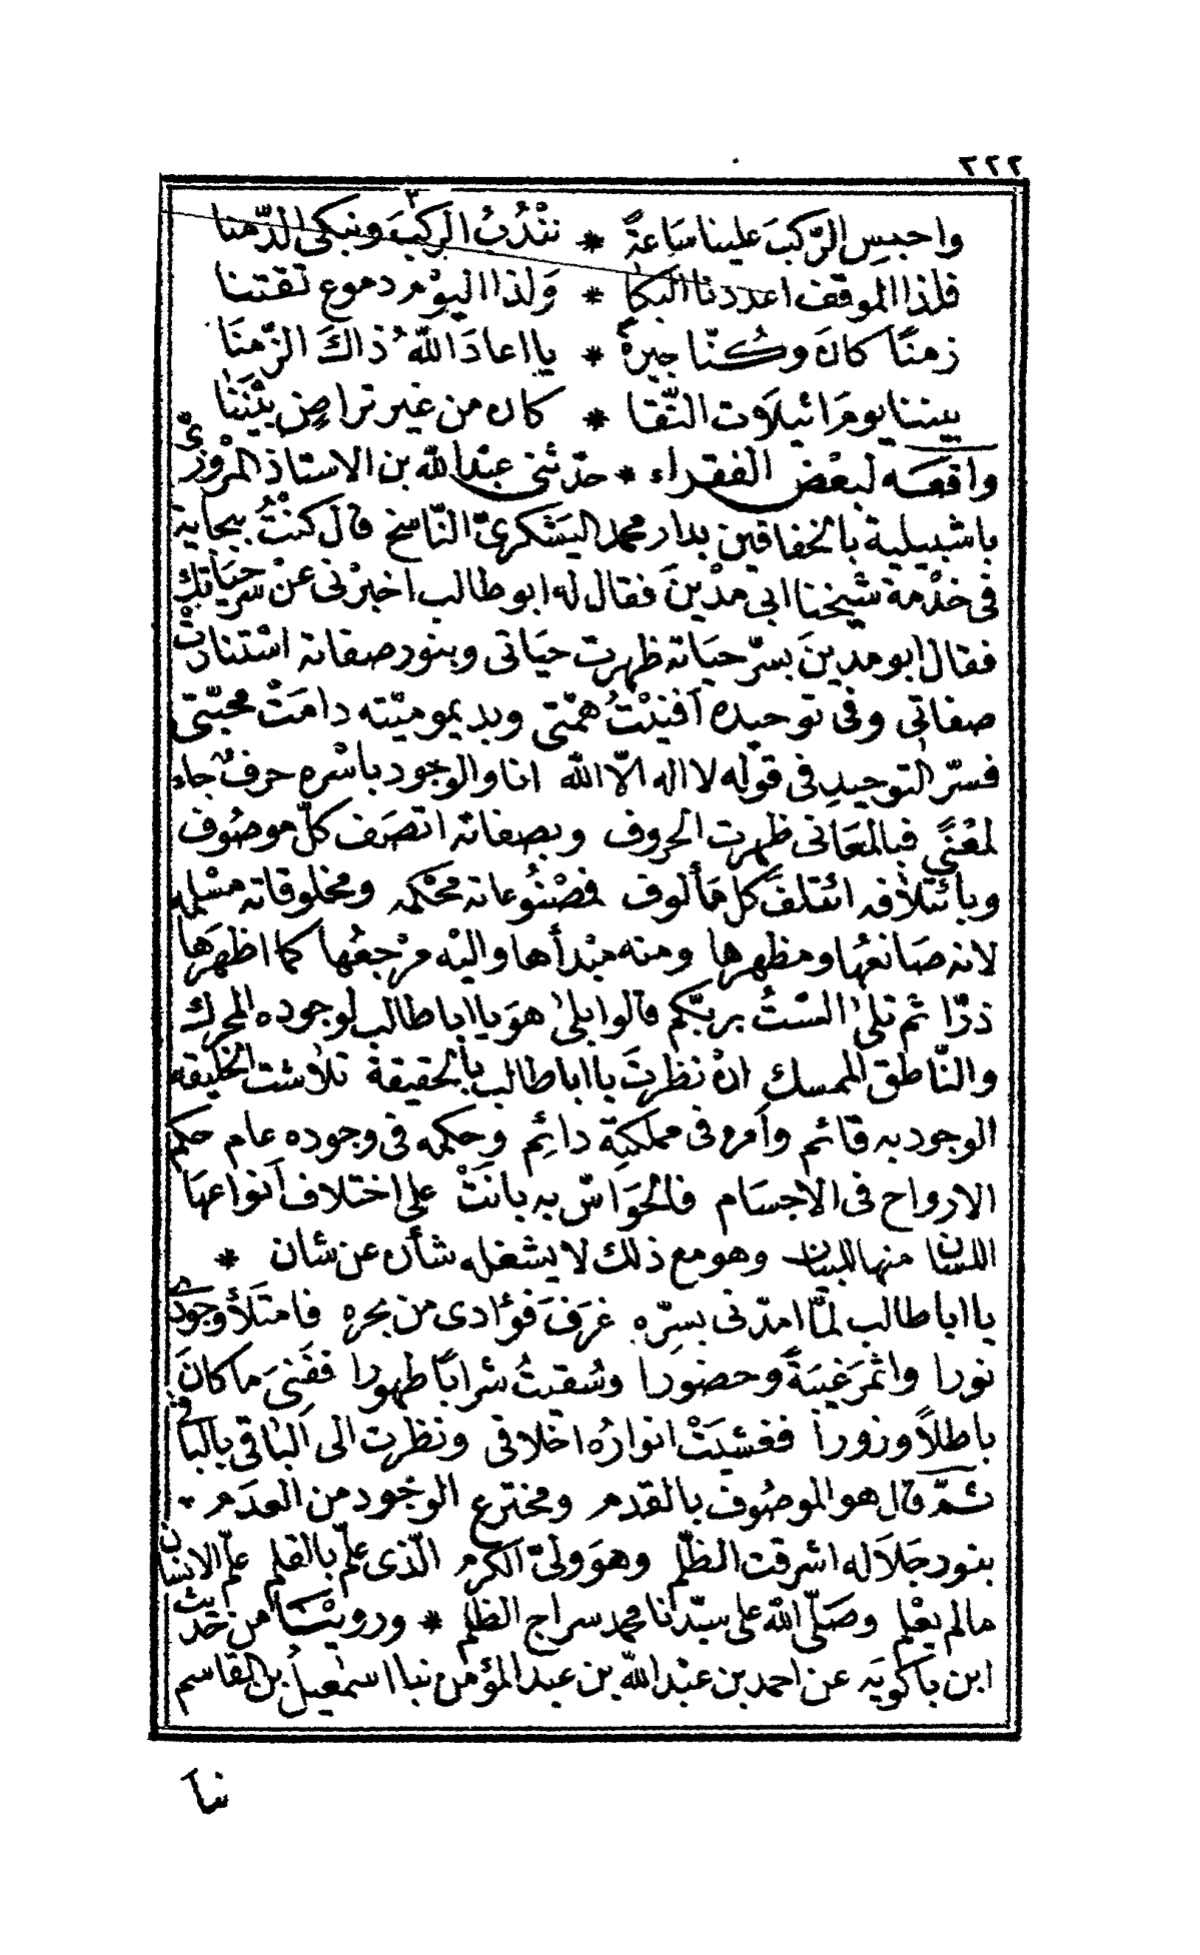 ٢٢٢
واحبسِ الرّكبَ علينا سَاعةً * نَنْدُبُ الركبَ ونبكى الدّمنا
فلذا الموقف اعددنا البكا * وَلذا اليوْم دموع تقتنا
زمنًا كانَ وكُنّا جيرةً * يا اعادَ اللّهُ ذاكَ الزّمنَا
بيننا يومَ اثيلاَوت النّقا * كان من غير تراضٍ بيْننَا
واقعَه لبعْض الفقراء * حدّثنى عبْدالله بن الاستاذ المرْوزىّ
باشبيلية بالخفافين بدار محمد اليَشكرىّ النّاسخ قال كنْتُ ببجاية
فى خدْمة شيخنا ابى مدْينَ فقال له ابو طالب اخبرْنى عنْ سرّحيَاتك
فقال ابو مدينَ بسرّ حيَاته ظهرت حيَاتى وبنور صفاته اسْتنارتْ
صفاتى وفى توحيده افنيْتُ همّتى وبديموميّته دامَتْ محبّتى
فسرّ التوحيدِ فى قوْله لا اله الّا الله انا والوجود باسْره حرفٌ جاء
لمعْنًى فبالمعَانى ظهرت الحروف وبصفاته اتصَف كلّ موصُوف
وبائتلاْفه ائتلفَ كل مَألوف فمصْنُوعاته محْكمه ومخلوقاته مسْلمه
لانه صَانعُها ومظهرها ومنه مبْدأها واليْه مرْجعُها كما اظهَرَها
ذرًّا ثم تلى الستُ بربّكم قالوا بلى هوَ يا ابا طالب لوجوده المحرك
والنّاطق الممسك انْ نظرتَ يا ابا طالب بالحقيقة تلاشت الخليقه
الوجود به قائم وأمره فى مملكته دائِم وحكمه فى وجوده عام حكم
الارواح فى الاجسَام فالحوَاسّ به بانَتْ على اختلاف اَنواعهَا
اللسَان منها للبيان وهو مع ذلك لا يشغله شأن عن شان *
يا ابا طالب لمّا امدّنى بسِرّه غرَفَ فؤادى من بحره فامتلأ وجودى
نورا واثمرَ غيبَةً وحضورا وسُقيتُ شرابًا طهورا ففَنىَ ما كانَ
باطلاً وزوراً فغشيَتْ انوارُه اخلاقى ونظرت الى الباقى بالباقى
ثمّ قال هو الموصُوف بالقدم ومخترع الوجُود من العدَم *
بنور جَلاَله اشرقت الظّلم وهوَ ولىّ الكرم الّذى علّم بالقلم علّم الانسان
مالم يعْلم وصَلّى الله على سيّدنا محمد سراج الظلم * ورويْنَا من حَديث
ابن باكويَه عن احمد بن عبْدالله بن عبد المؤمن نبا اسمٰعيلُ بن القاسم
نبا